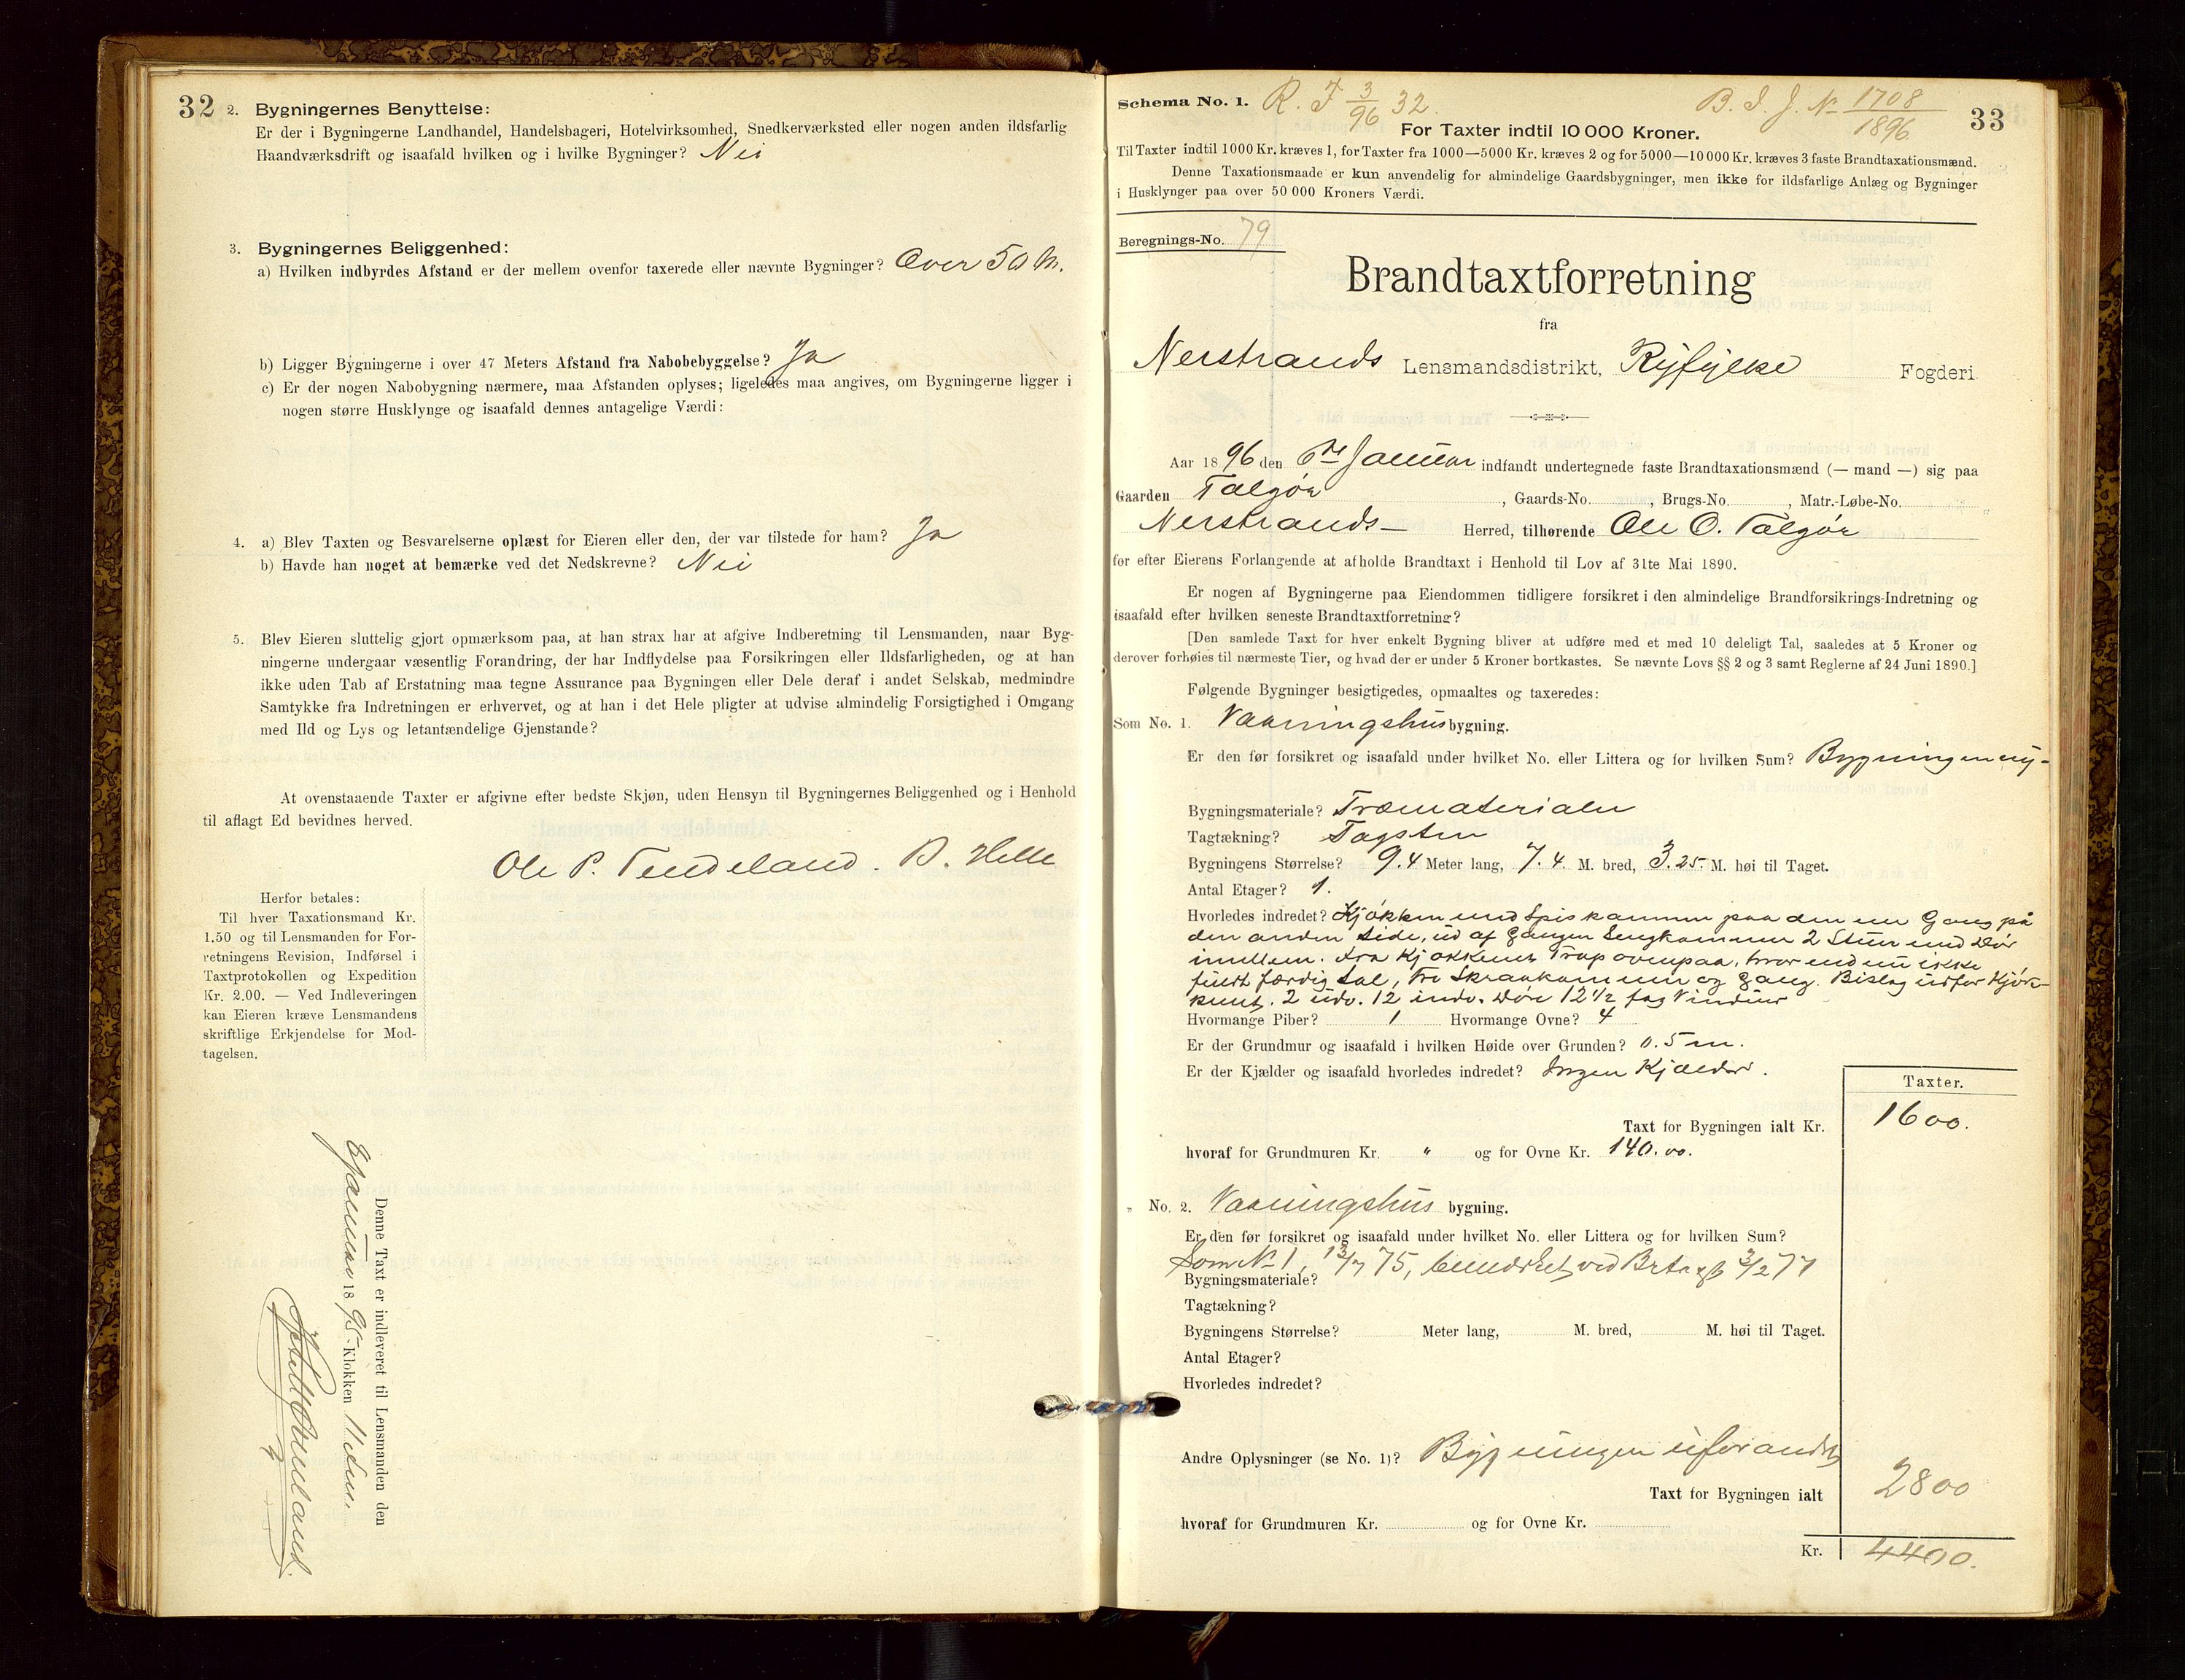 32
2. Bygningernes Benyttelse:
Er der i Bygningerne Landhandel, Handelsbageri, Hotelvirksomhed, Snedkerværksted eller nogen anden ildsfarlig
Haandværksdrift og isaafald hvilken og i hvilke Bygninger? Nei
3. Bygningernes Beliggenhed:
a) Hvilken indbyrdes Afstand er der mellem ovenfor taxerede eller nævnte Bygninger? Over 50 m.
b) Ligger Bygningerne i over 47 Meters Afstand fra Nabobebyggelse? Ja
c) Er der nogen Nabobygning nærmere, maa Afstanden oplyses; ligeledes maa angives, om Bygningerne ligger i
nogen større Husklynge og isaafald dennes antagelige Værdi:
4. a) Blev Taxten og Besvarelserne oplæst for Eieren eller den, der var tilstede for ham? Ja
b) Havde han noget at bemærke ved det Nedskrevne? Nei
5. Blev Eieren sluttelig gjort opmærksom paa, at han strax har at afgive Indberetning til Lensmanden, naar Byg-
ningerne undergaar væsentlig Forandring, der har Indflydelse paa Forsikringen eller Ildsfarligheden, og at han
ikke uden Tab af Erstatning maa tegne Assurance paa Bygningen eller Dele deraf i andet Selskab, medmindre
Samtykke fra Indretningen er erhvervet, og at han i det Hele pligter at udvise almindelig Forsigtighed i Omgang
med Ild og Lys og letantændelige Gjenstande?
At ovenstaaende Taxter er afgivne efter bedste Skjøn, uden Hensyn til Bygningernes Beliggenhed og i Henhold
til aflagt Ed bevidnes herved.
Ole P. Tendeland. B. Helle
Herfor betales:
Til hver Taxationsmand Kr.
1.50 og til Lensmanden for For-
retningens Revision, Indførsel i
Taxtprotokollen og Expedition
Kr. 2.00. — Ved Indleveringen
kan Eieren kræve Lensmandens
skriftlige Erkjendelse for Mod-
tagelsen.
Denne Taxt er indleveret til Lensmanden den
Januar 1895 Klokken 11
33
Schema No. 1. R. F 3/96 32. B. I. J. No 1708/1896
For Taxter indtil 10 000 Kroner.
Til Taxter indtil 1000 Kr. kræves 1, for Taxter fra 1000—5000 Kr. kræves 2 og for 5000—10 000 Kr. kræves 3 faste Brandtaxationsmænd.
Denne Taxationsmaade er kun anvendelig for almindelige Gaardsbygninger, men ikke for ildsfarlige Anlæg og Bygninger
i Husklynger paa over 50 000 Kroners Værdi.
Beregnings-No. 79
Brandtaxtforretning
fra
Nerstrands Lensmandsdistrikt, Ryfylke Fogderi
Aar 1896 den 6te Januar indfandt undertegnede faste Brandtaxationsmænd (— mand —) sig paa
Gaarden Talgøe, Gaards-No. , Brugs-No. , Matr.-Løbe-No.
Nerstrands Herred, tilhørende Ole O. Talgøe
for efter Eierens Forlangende at afholde Brandtaxt i Henhold til Lov af 31te Mai 1890.
Er nogen af Bygningerne paa Eiendommen tidligere forsikret i den almindelige Brandforsikrings-Indretning og
isaafald efter hvilken seneste Brandtaxtforretning?
[Den samlede Taxt for hver enkelt Bygning bliver at udføre med et med 10 deleligt Tal, saaledes at 5 Kroner og
derover forhøies til nærmeste Tier, og hvad der er under 5 Kroner bortkastes. Se nævnte Lovs §§ 2 og 3 samt Reglerne af 24 Juni 1890.]
Følgende Bygninger besigtigedes, opmaaltes og taxeredes:
Som No. 1. Vaaningshus bygning.
Er den før forsikret og isaafald under hvilket No. eller Littera og for hvilken Sum? Bygningen ny-
Bygningsmateriale? Træmaterialer
Tagtækning? Tagsten
Bygningens Størrelse? 9.4 Meter lang, 7.4 M. bred, 3.25 M. høi til Taget.
Antal Etager? 1.
Hvorledes indredet? Kjøkken med Spiskammer paa den ene Gang på
den anden side, ud af Gangen Sengkammer 2 Stuer med Dør
imellem. Fra Kjøkkenet Trap ovenpaa, hvor endnu ikke
fuldt færdig Sal, Tre Skraakammer og Gang. Bislag udfor Kjøk-
kenet. 2 udv. 12 indv. Døre 12 1/2 fag Vinduer
Hvormange Piber? 1 Hvormange Ovne? 4
Er der Grundmur og isaafald i hvilken Høide over Grunden? 0.5 m.
Er der Kjælder og isaafald hvorledes indredet? Ingen Kjælder.
Taxter.
Taxt for Bygningen ialt Kr. 1600.
hvoraf for Grundmuren Kr. " og for Ovne Kr. 140.00.
" No. 2. Vaaningshus bygning.
Er den før forsikret og isaafald under hvilket No. eller Littera og for hvilken Sum?
Som No 1, 13/7 75, ved Brtaxt 3/2 77
Bygningsmateriale?
Tagtækning?
Bygningens Størrelse? Meter lang, M. bred, M. høi til Taget.
Antal Etager?
Hvorledes indredet?
Andre Oplysninger (se No. 1)? Bygningen uforandret
Taxt for Bygningen ialt 2800
hvoraf for Grundmuren Kr. og for Ovne Kr.
Kr. 4400.